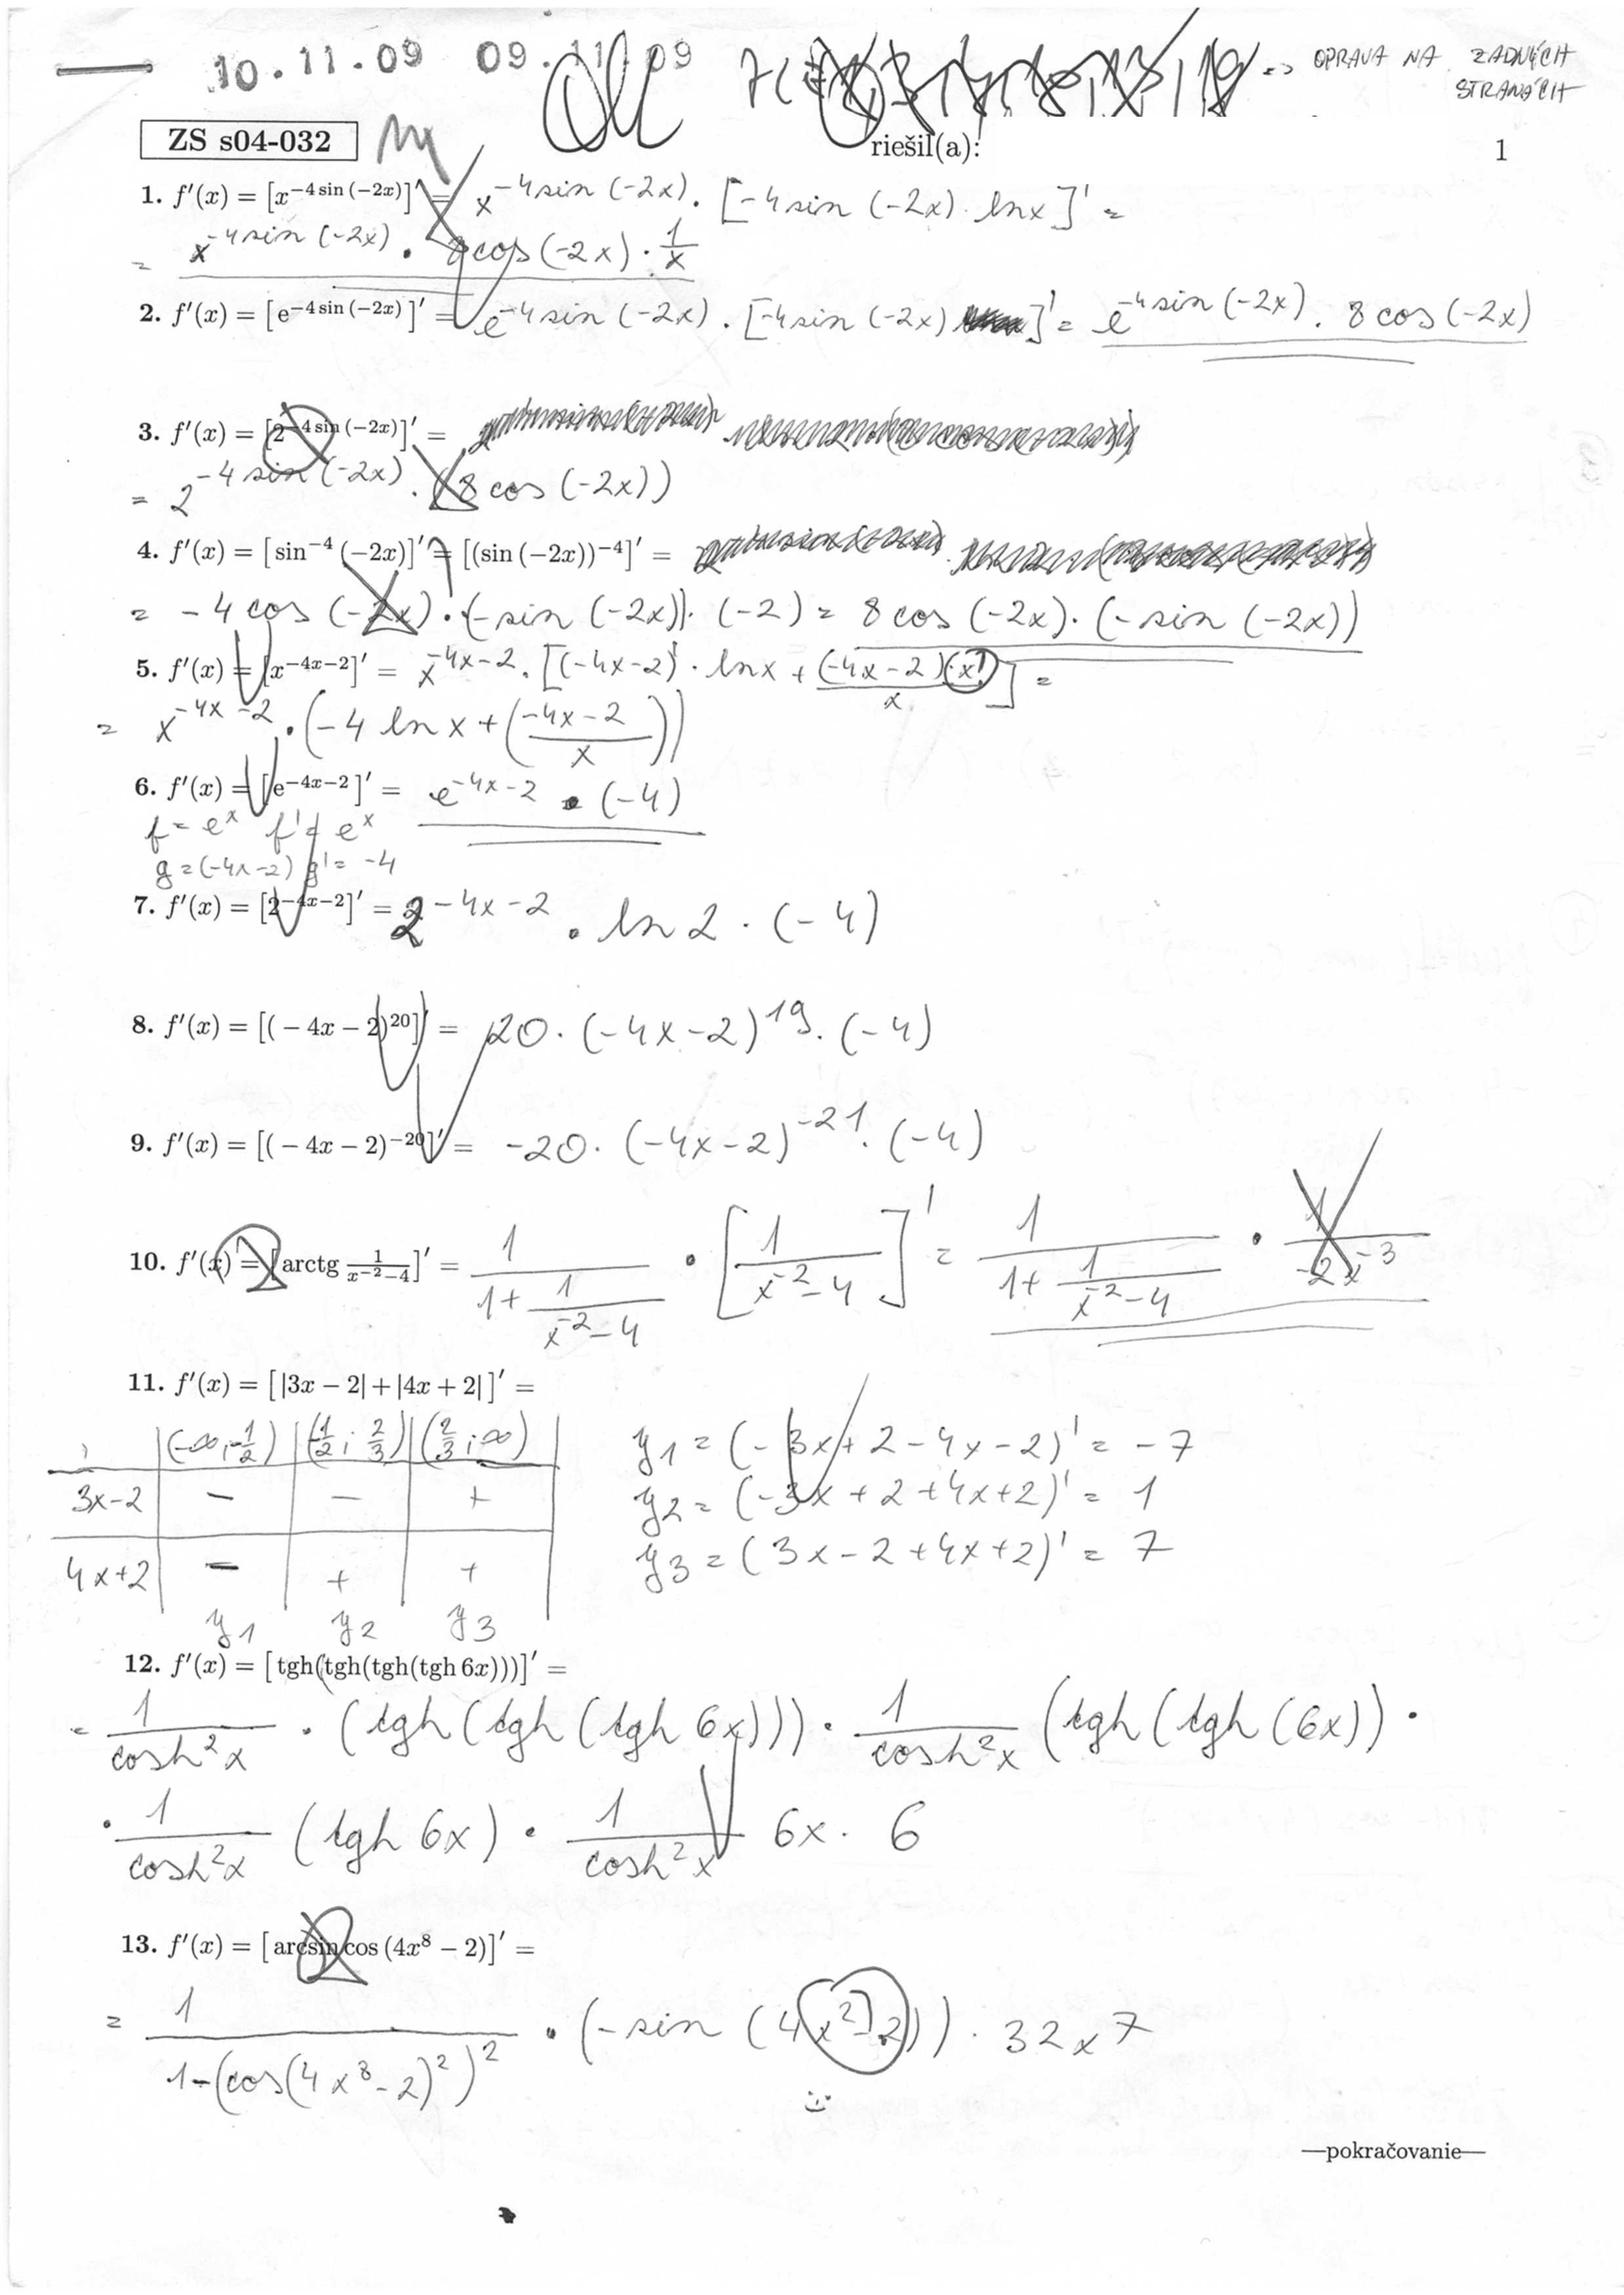 10.11.09 09.11.09 => OPRAVA NA ZADNÝCH
STRANÁCH
ZS s04-032 riešil(a): 1
1. f'(x) = [x^{-4 sin (-2x)}]' = x^{-4 sin (-2x)} · [-4 sin (-2x) · ln x]' =
= x^{-4 sin (-2x)} · 8 cos (-2x) · 1/x
2. f'(x) = [e^{-4 sin (-2x)}]' = e^{-4 sin (-2x)} · [-4 sin (-2x)]' = e^{-4 sin (-2x)} · 8 cos (-2x)
3. f'(x) = [2^{-4 sin (-2x)}]' =
= 2^{-4 sin (-2x)} · (8 cos (-2x))
4. f'(x) = [sin^{-4} (-2x)]' = [(sin (-2x))^{-4}]' =
= -4 cos (-2x) · (-sin (-2x)) · (-2) = 8 cos (-2x) · (-sin (-2x))
5. f'(x) = [x^{-4x-2}]' = x^{-4x-2} · [(-4x-2)' · ln x + (-4x-2)(x')/x] =
= x^{-4x-2} · (-4 ln x + (-4x-2/x))
6. f'(x) = [e^{-4x-2}]' = e^{-4x-2} · (-4)
f = e^x f' = e^x
g = (-4x-2) g' = -4
7. f'(x) = [2^{-4x-2}]' = 2^{-4x-2} · ln 2 · (-4)
8. f'(x) = [(-4x-2)^{20}]' = 20 · (-4x-2)^{19} · (-4)
9. f'(x) = [(-4x-2)^{-20}]' = -20 · (-4x-2)^{-21} · (-4)
10. f'(x) = [arctg 1/(x^{-2}-4)]' = 1/(1+1/(x^{-2}-4)) · [1/(x^{-2}-4)]' = 1/(1+1/(x^{-2}-4)) · 1/(-2x^{-3})
11. f'(x) = [|3x-2|+|4x+2|]' =
(-∞;-1/2) (-1/2; 2/3) (2/3; ∞) y1 = (-3x+2-4x-2)' = -7
3x-2 - - + y2 = (-3x+2+4x+2)' = 1
4x+2 - + + y3 = (3x-2+4x+2)' = 7
y1 y2 y3
12. f'(x) = [tgh(tgh(tgh(tgh 6x)))]' =
= 1/cosh²x · (tgh(tgh(tgh 6x))) · 1/cosh²x (tgh(tgh(6x)) ·
· 1/cosh²x (tgh 6x) · 1/cosh²x 6x · 6
13. f'(x) = [arcsin cos (4x^8 - 2)]' =
= 1/(1-(cos(4x^8-2)^2)^2) · (-sin (4x^2-2)) · 32x^7
—pokračovanie—